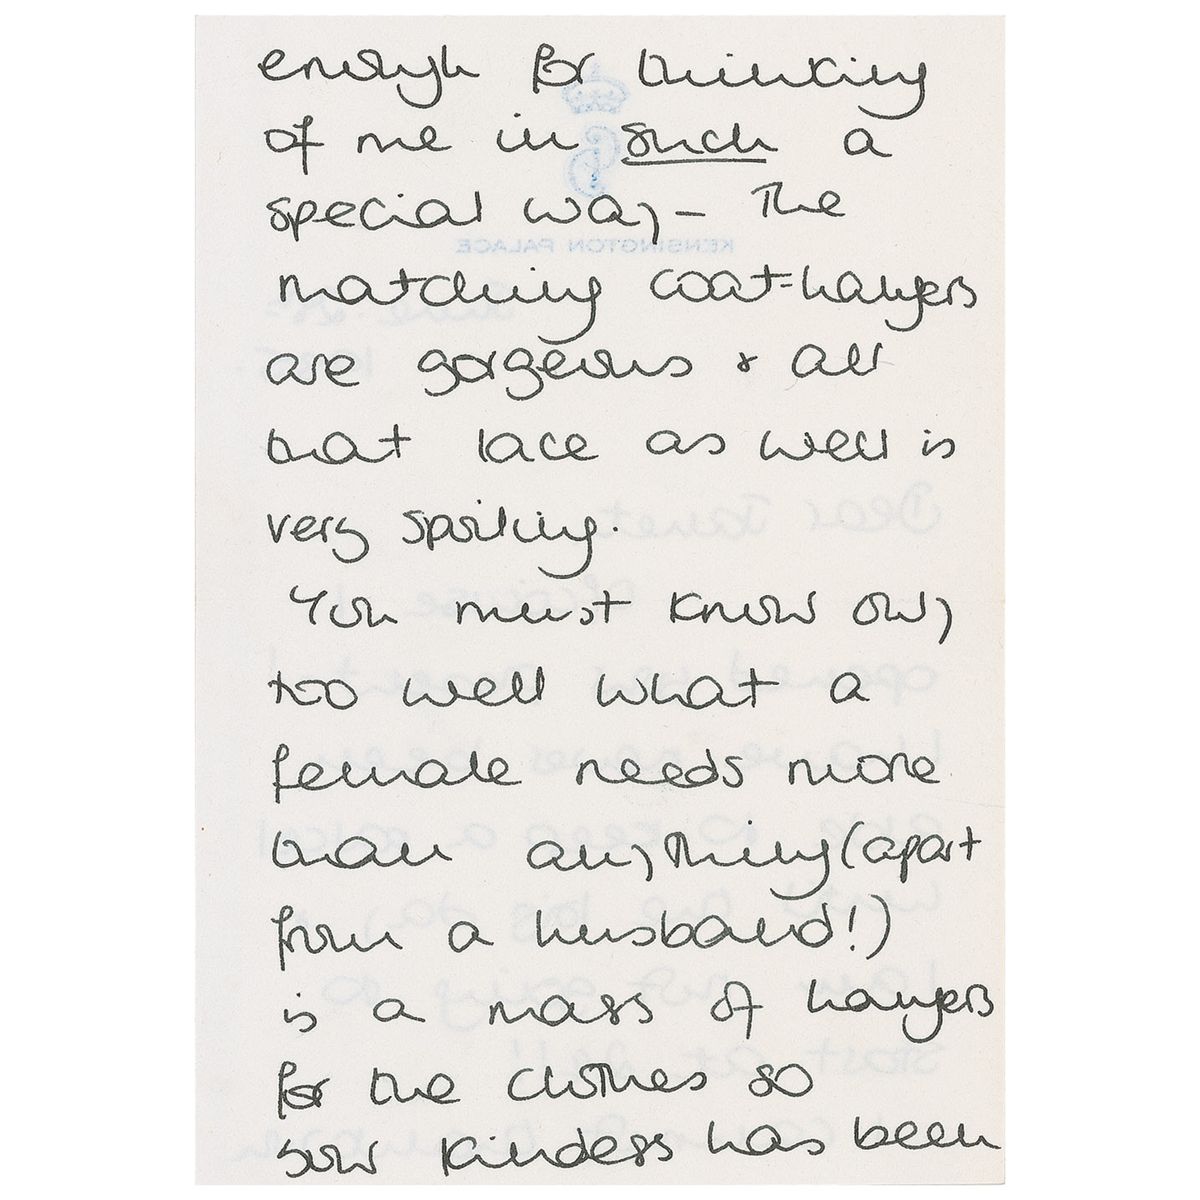 enough for thinking
of me in such a
special way – The
KENSINGTON PALACE
matching coat=hangers
are gorgeous & all
that lace as well is
very spoiling.
You must know only
too well what a
female needs more
than anything (apart
from a husband!)
is a mass of hangers
for the clothes so
your kindess has been